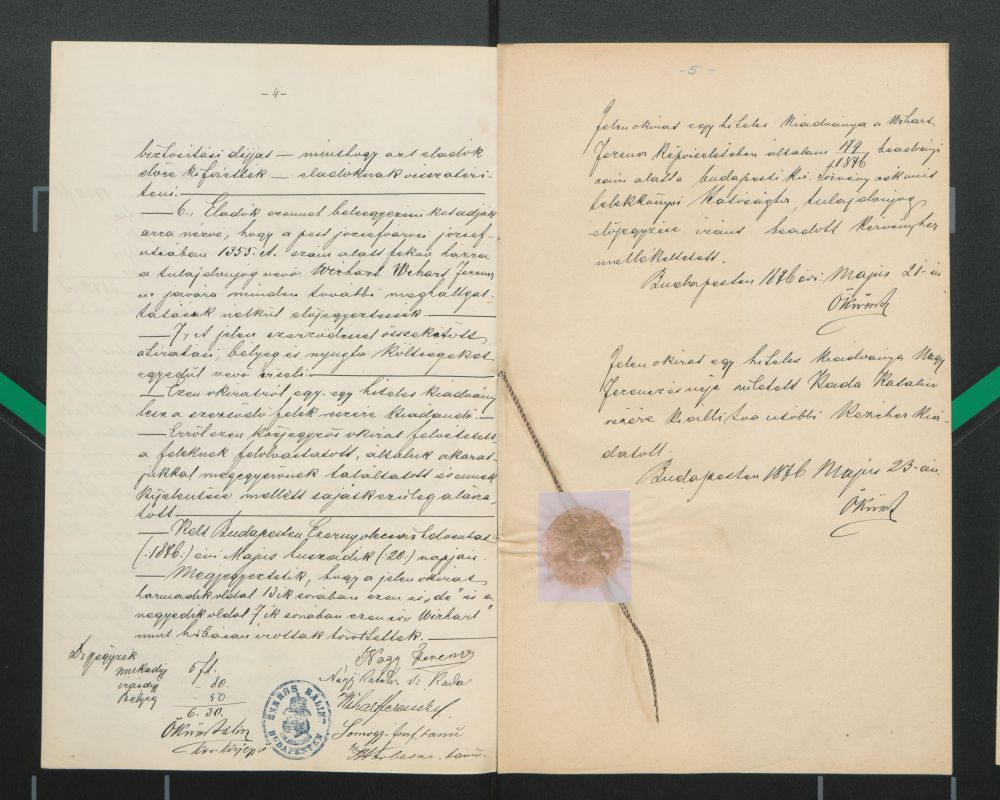 -4-
biztositási díjját — minthogy azt eladók
előre kifizették — eladóknak visszatéríteni.
— 6., Eladók ezennel beleegyezésüket adják
arra nézve, hogy a pest józsefvárosi józsef-
utczában 1355. sz. szám alatt fekvő házra
a tulajdonjog vevő Wirhart Wihart Ferencz
úr javára minden további meghallgat-
tatásuk nélkül előjegyeztessék.
— 7., A jelen szerződéssel összekötött
átiratási, bélyeg és nyugta költségeket
egyedül vevő viseli.
— Ezen okiratról egy-egy hiteles kiadvány
lesz a szerződő felek részére kiadandó.
— Erről ezen közjegyzői okirat felvétetett
a feleknek felolvastatott, általuk akarat-
jukkal megegyezőnek találtatott és ennek
kijelentése mellett sajátkezüleg aláira-
tott.
— Kelt Budapesten Ezernyolczszáz hetvenhat
(:1876:) évi Május huszadik (:20:) napján.
— Megjegyeztetik, hogy a jelen okirat
harmadik oldal 13ik sorában ezen szó „de" és a
negyedik oldal 7ik sorában ezen szó Wirhart"
mint hibásan irottak töröltettek.
Díjjegyzék
munkadíj 5 ft.
irásdíj - 80.
Bélyeg - 50
6. 30.
Nagy Ferencz
Nagy Katalin sz. Kada
Wihart Ferencz
Somogyi József tanú
tanú.
Ökrös Bálint
kir. közjegyző
ÖKRÖSS BÁLINT
BUDAPESTEN
-5-
Jelen okirat egy hiteles kiadványa a Wihart
Ferencz képviseletében általam 179/1876 beadványi
szám alatt a budapesti kir. Törvényszék mint
telekkönyvi hatósághoz, tulajdonjog
előjegyzése iránt beadott kérvényhez
mellékeltetett.
Budapesten 1876 évi Május 21-én
Ökrös
Jelen okirat egy hiteles kiadványa Nagy
Ferencz és neje született Kada Katalin
részére kiállitva utóbbi kezéhez kia-
datott.
Budapesten 1876 Május 23-án
Ökrös